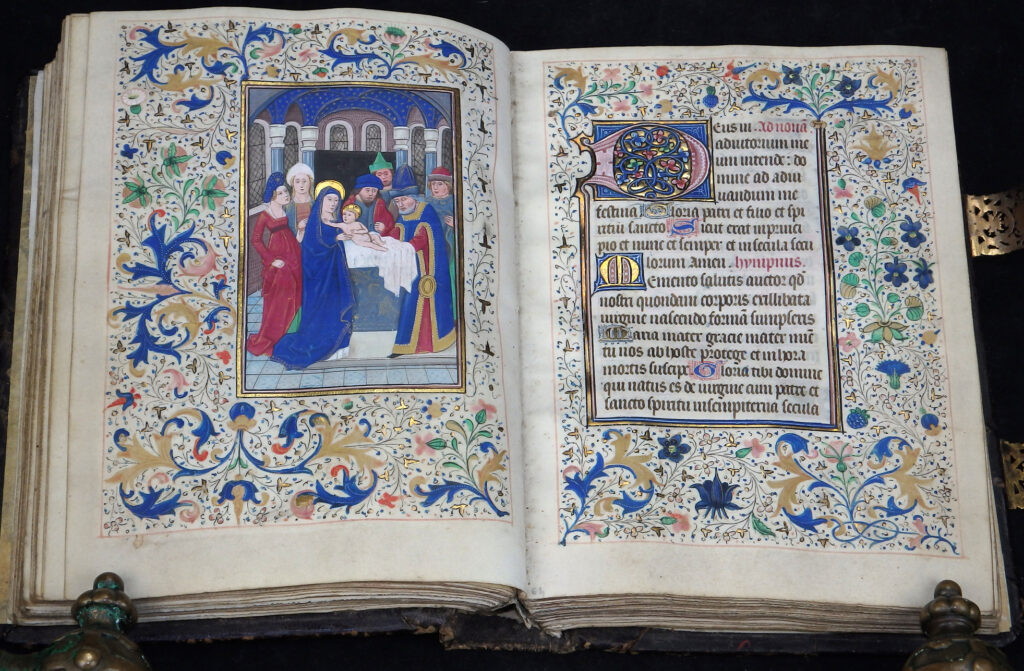 Deus in. Ad nonā
adiutorium me
um intende: do
mine ad adiu
uandum me
festina Gloria patri et filio et spi
ritui sancto Sicut erat inprinci
pio et nunc et semper et in secula secu
lorum Amen. hympnus.
Memento salutis auctor qđ
nostri quondam corporis exillibata
uirgine nascendo formā sumpseris
Maria mater gracie mater
tu nos ab hoste protege et in hora
mortis suscipe Gloria tibi domine
qui natus es de uirgine cum patre et
sancto spiritu in sempiterna secula